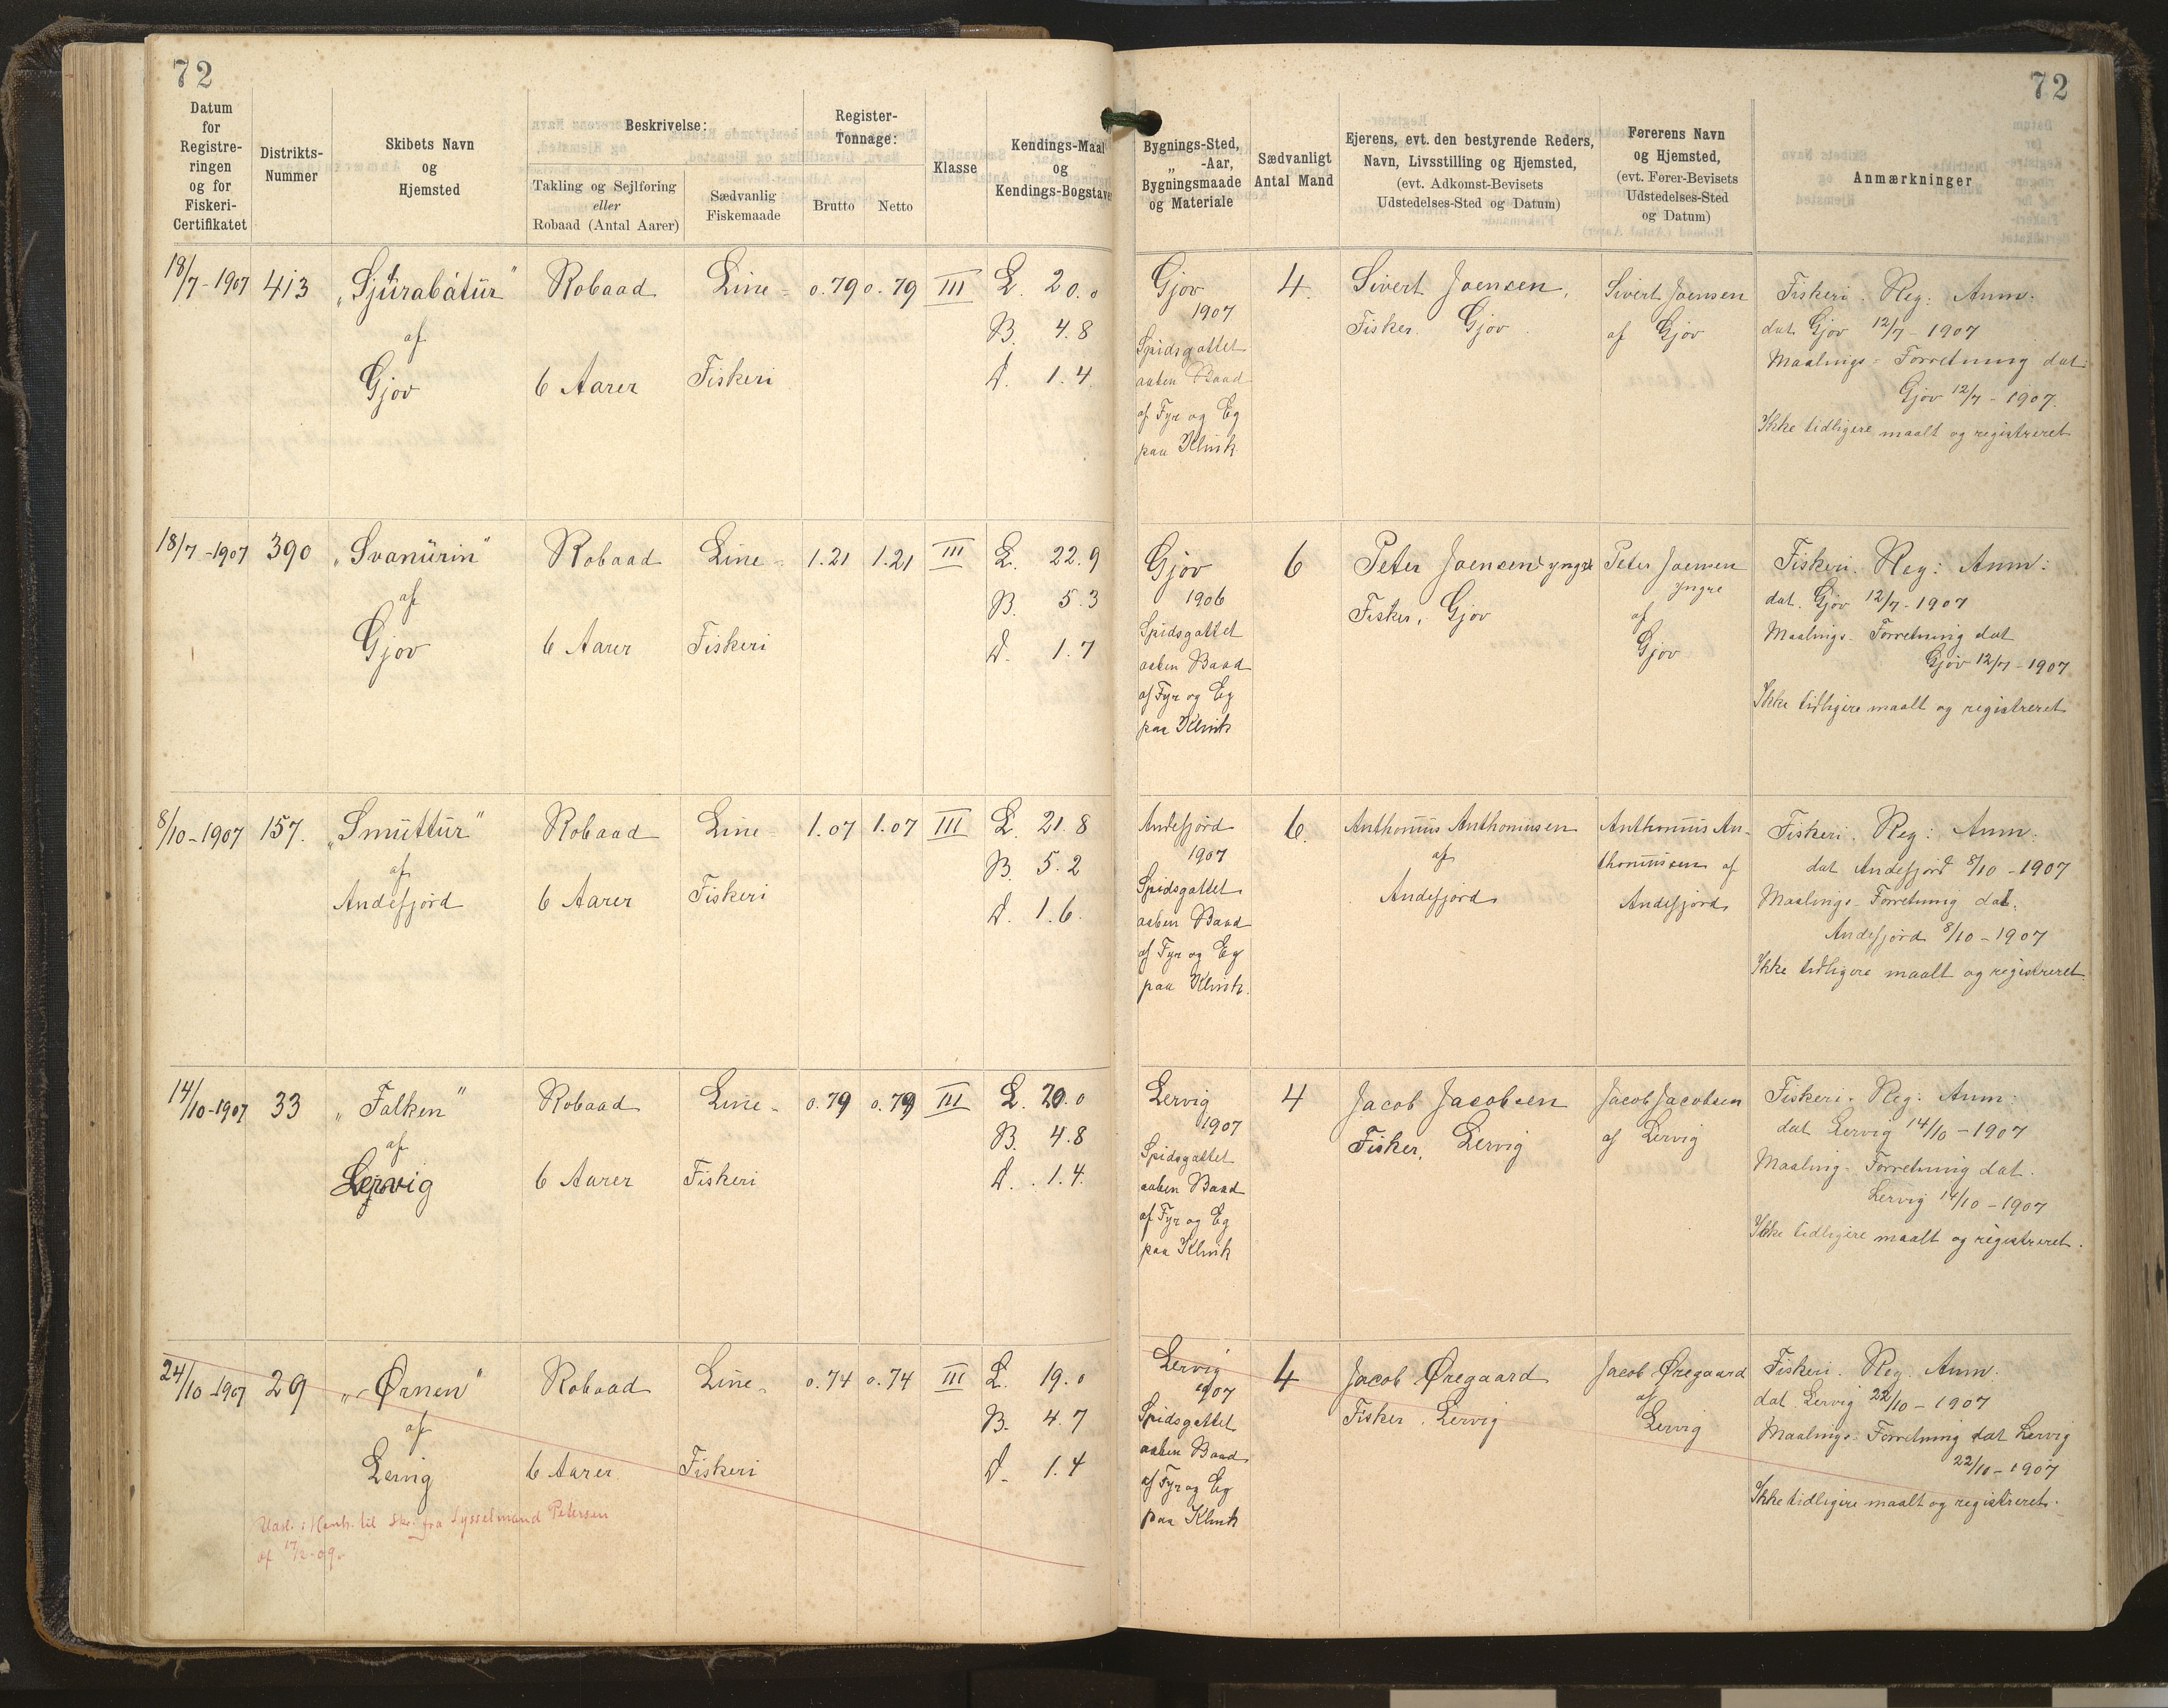 72
72
Datum for Registreringen og for Fiskeri-Certifikatet
Distrikts-Nummer
Skibets Navn og Hjemsted
Beskrivelse:
Takling og Sejlføring eller Robaad (Antal Aarer)
Sædvanlig Fiskemaade
Register-Tonnage:
Brutto
Netto
Klasse
Kendings-Maal og Kendings-Bogstaver
Bygnings-Sted, „ -Aar, Bygningsmaade og Materiale
Sædvanligt Antal Mand
Ejerens, evt. den bestyrende Reders, Navn, Livsstilling og Hjemsted, (evt. Adkomst-Bevisets Udstedelses-Sted og Datum)
Førerens Navn og Hjemsted, (evt. Fører-Bevisets Udstedelses-Sted og Datum)
Anmærkninger
18/7-1907 413 „Sjúrabátur" Robaad Line- 0.79 0.79 III L. 20.0
af B. 4.8
Gjov 6 Aarer Fiskeri D. 1.4
Gjov 4. Sivert Joensen, Sivert Joensen Fiskeri. Reg: Anm:
1907 Fisker. Gjov af Gjov dat. Gjov 12/7-1907
Spidsgattet Maalings-Forretning dat.
aaben Baad Gjov 12/7-1907.
af Fyr og Eg Ikke tidligere maalt og registreret
paa Klink
18/7-1907 390 „Svanurin" Robaad Line- 1.21 1.21 III L. 22.9
af B. 5.3
Gjov 6 Aarer Fiskeri D. 1.7
Gjov 6 Peter Joensen yngre Peter Joensen Fiskeri. Reg: Anm:
1906 Fisker, Gjov yngre dat. Gjov 12/7-1907
Spidsgattet af Maalings-Forretning dat
aaben Baad Gjov Gjov 12/7-1907
af Fyr og Eg Ikke tidligere maalt og registreret
paa Klink
8/10-1907 157. „Smuttur" Robaad Line- 1.07 1.07 III L. 21.8
af B. 5.2
Andefjord 6 Aarer Fiskeri D. 1.6.
Andefjord 6. Anthonius Anthoniusen Anthonius An- Fiskeri. Reg: Anm.
1907 af thoniusen af dat Andefjord 8/10-1907
Spidsgattet Andefjord Andefjord Maalings-Forretning dat.
aaben Baad Andefjord 8/10-1907
af Fyr og Eg Ikke tidligere maalt og registreret
paa Klink.
14/10-1907 33 „Falken" Robaad Line- 0.79 0.79 III L. 20.0
af B. 4.8
Lervig 6 Aarer Fiskeri D. 1.4.
Lervig 4 Jacob Jacobsen Jacob Jacobsen Fiskeri. Reg: Anm:
1907 Fisker, Lervig af Lervig dat Lervig 14/10-1907
Spidsgattet Maaling-Forretning dat.
aaben Baad Lervig 14/10-1907
af Fyr og Eg Ikke tidligere maalt og registreret.
paa Klink
24/10-1907 29 „Ørnen" Robaad Line- 0.74 0.74 III L. 19.0
af B. 4.7
Lervig 6 Aarer Fiskeri D. 1.4
Udsl. i Henh. til Skr. fra Sysselmand Petersen
af 17/2-09.
Lervig 4 Jacob Øregaard Jacob Øregaard Fiskeri. Reg. Anm.
1907 Fisker. Lervig af dat. Lervig 22/10-1907
Spidsgattet Lervig Maalings-Forretning dat Lervig
aaben Baad 22/10-1907
af Fyr og Eg Ikke tidligere maalt og registreret.
paa Klink